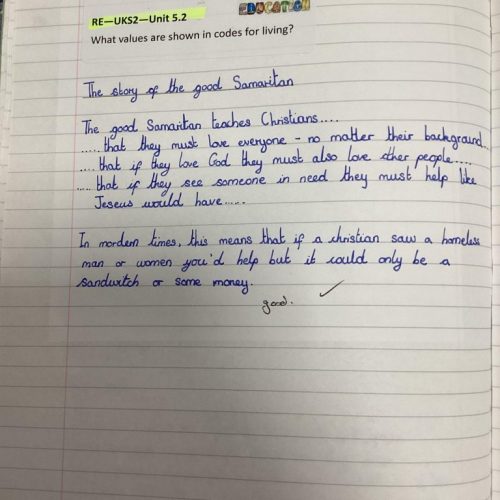 EDUCATION
RE—UKS2—Unit 5.2
What values are shown in codes for living?
The story of the good Samaritan
The good Samaritan teaches Christians....
.....that they must love everyone - no matter their background..
....that if they love God they must also love other people....
.....that if they see someone in need they must help like
Jeseus would have.....
In mordern times, this means that if a christian saw a homeless
man or women you'd help but it could only be a
sandwitch or some money.
good. ✓